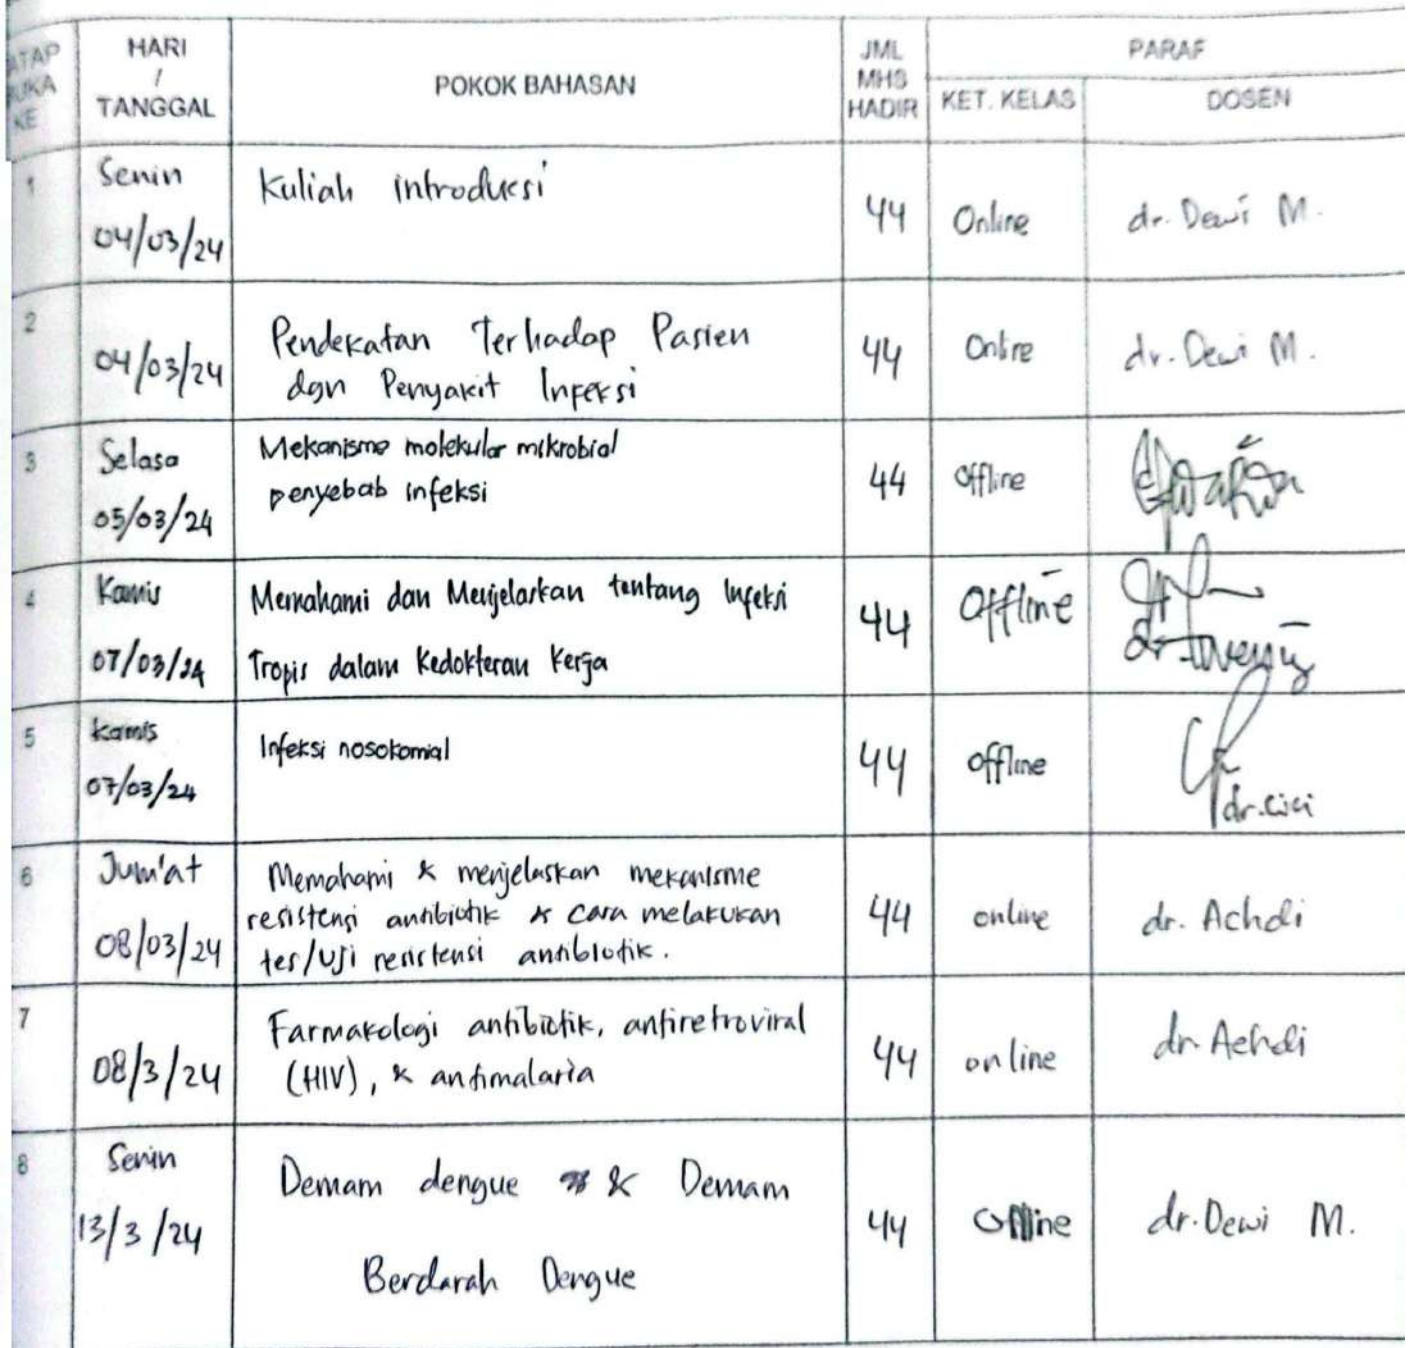 ATAP
UKA
KE
HARI
/
TANGGAL
POKOK BAHASAN
JML
MHS
HADIR
PARAF
KET. KELAS
DOSEN
1
Senin
04/03/24
Kuliah introduksi
44
Online
dr. Dewi M.
2
04/03/24
Pendekatan Terhadap Pasien
dgn Penyakit Infeksi
44
Online
dr. Dewi M.
3
Selasa
05/03/24
Mekanisme molekular mikrobial
penyebab infeksi
44
Offline
4
Kamis
07/03/24
Memahami dan Menjelaskan tentang Infeksi
Tropis dalam Kedokteran Kerja
44
Offline
5
Kamis
07/03/24
Infeksi nosokomial
44
offline
dr. Cici
6
Jum'at
08/03/24
Memahami & menjelaskan mekanisme
resistensi antibiotik & cara melakukan
tes/uji resistensi antibiotik.
44
online
dr. Achdi
7
08/3/24
Farmakologi antibiotik, antiretroviral
(HIV), & antimalaria
44
online
dr. Achdi
8
Senin
13/3/24
Demam dengue & Demam
Berdarah Dengue
44
Offline
dr. Dewi M.